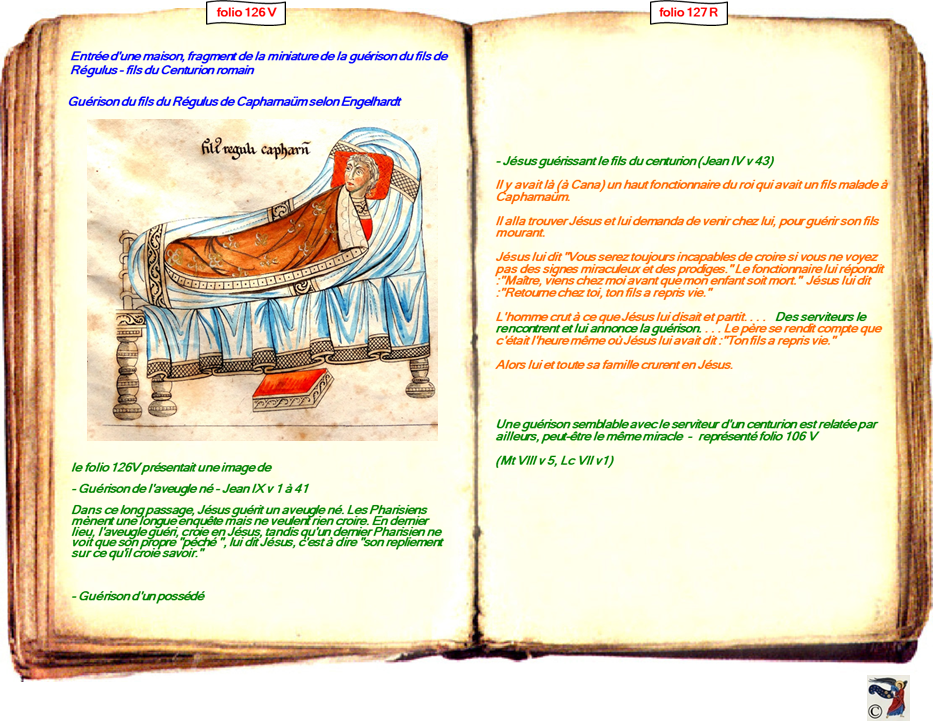 folio 126 V
Entrée d'une maison, fragment de la miniature de la guérison du fils de
Régulus - fils du Centurion romain
Guérison du fils du Régulus de Capharnaüm selon Engelhardt
reguli capharn̄
le folio 126V présentait une image de
- Guérison de l'aveugle né - Jean IX v 1 à 41
Dans ce long passage, Jésus guérit un aveugle né. Les Pharisiens
mènent une longue enquête mais ne veulent rien croire. En dernier
lieu, l'aveugle guéri, croie en Jésus, tandis qu'un dernier Pharisien ne
voit que son propre "péché ", lui dit Jésus, c'est à dire "son repliement
sur ce qu'il croie savoir."
- Guérison d'un possédé
folio 127 R
- Jésus guérissant le fils du centurion (Jean IV v 43)
Il y avait là (à Cana) un haut fonctionnaire du roi qui avait un fils malade à
Capharnaüm.
Il alla trouver Jésus et lui demanda de venir chez lui, pour guérir son fils
mourant.
Jésus lui dit "Vous serez toujours incapables de croire si vous ne voyez
pas des signes miraculeux et des prodiges." Le fonctionnaire lui répondit
:"Maître, viens chez moi avant que mon enfant soit mort." Jésus lui dit
:"Retourne chez toi, ton fils a repris vie."
L'homme crut à ce que Jésus lui disait et partit. . . . Des serviteurs le
rencontrent et lui annonce la guérison. . . . Le père se rendit compte que
c'était l'heure même où Jésus lui avait dit :"Ton fils a repris vie."
Alors lui et toute sa famille crurent en Jésus.
Une guérison semblable avec le serviteur d'un centurion est relatée par
ailleurs, peut-être le même miracle - représenté folio 106 V
(Mt VIII v 5, Lc VII v1)
©